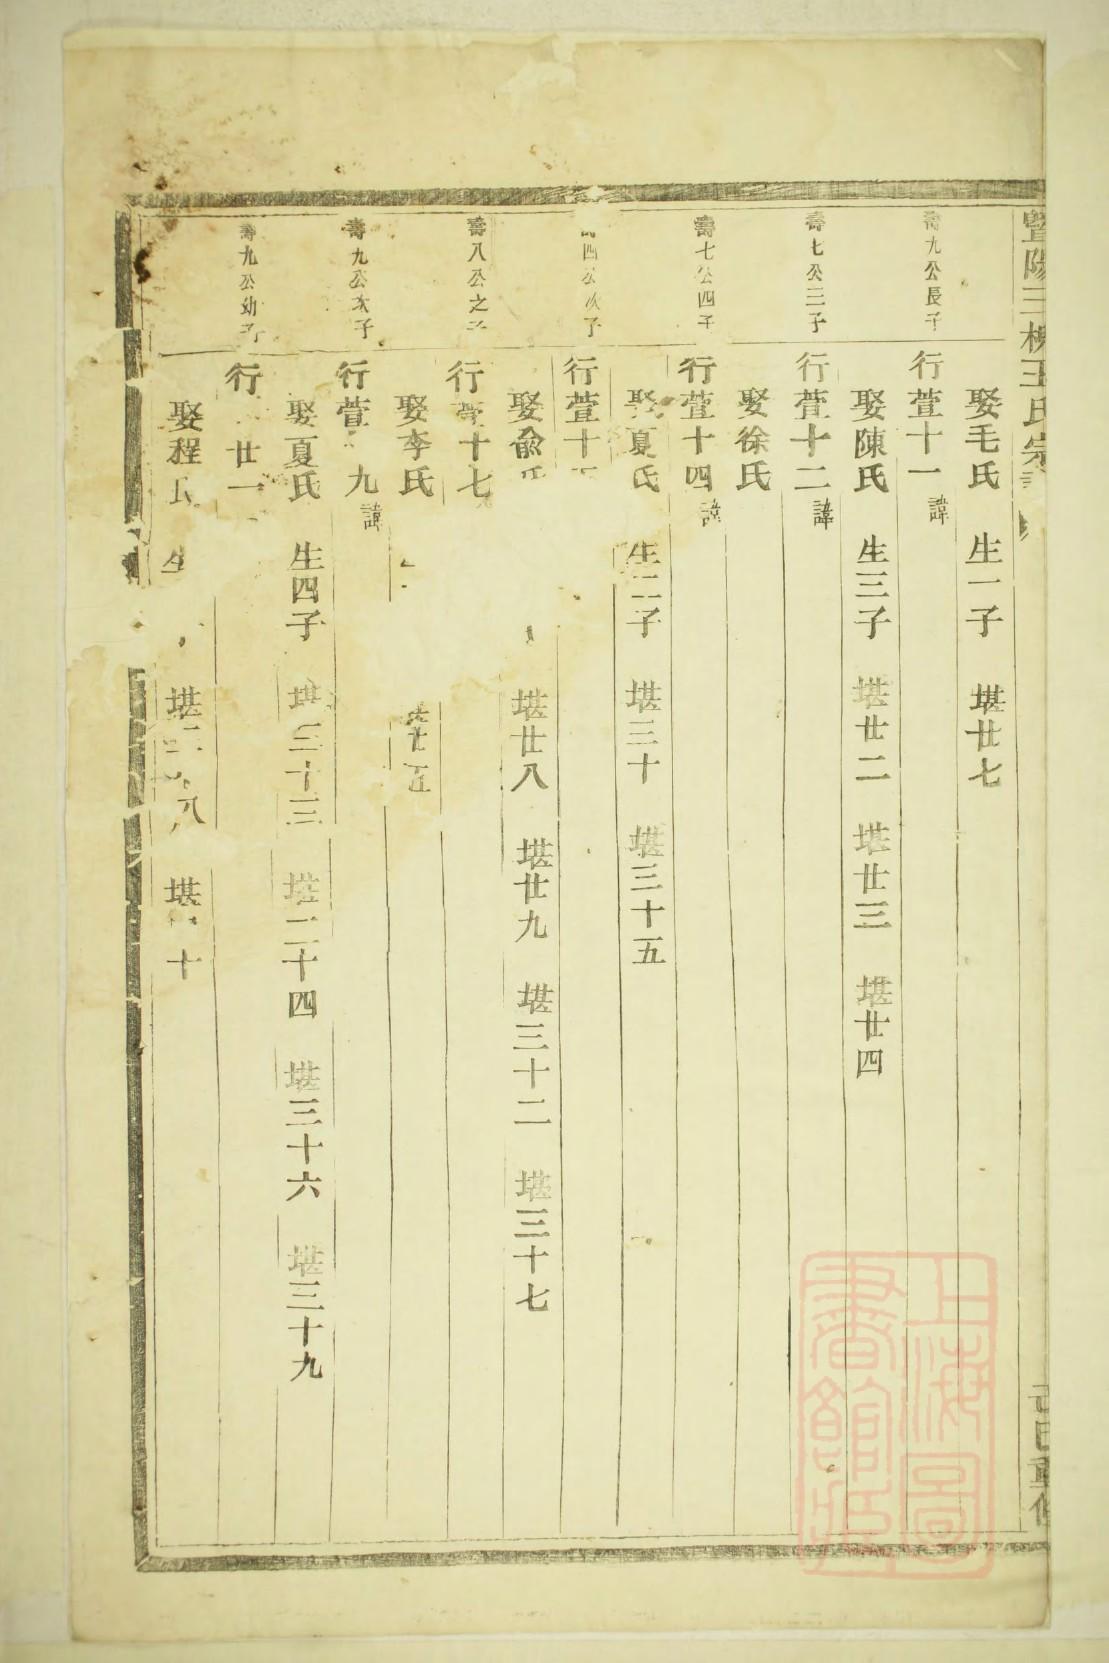 暨陽三槐王氏宗譜
己巳重修
壽九公長子
行萱十一 諱
娶毛氏 生一子 堪廿七
壽七公三子
行萱十二 諱
娶陳氏 生三子 堪廿二 堪廿三 堪廿四
壽七公四子
行萱十四 諱
娶徐氏
四公次子
行萱十
娶夏氏 生二子 堪三十 堪三十五
壽八公之子
行萱十七
娶俞氏 堪廿八 堪廿九 堪三十二 堪三十七
壽九公次子
行萱 九 諱
娶李氏 廿五
壽九公幼子
行 廿一
娶夏氏 生四子 堪三十三 堪三十四 堪三十六 堪三十九
娶程氏 生 堪三 八 堪 十
上海圖書館藏